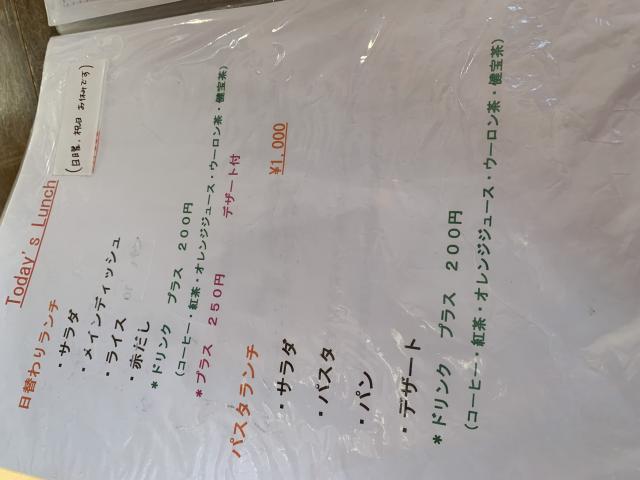 Today's Lunch
(日曜、祝日 お休みです)
日替わりランチ
・サラダ
・メインディッシュ
・ライス or パン
・赤だし
＊ドリンク プラス ２００円
（コーヒー・紅茶・オレンジジュース・ウーロン茶・健宝茶）
＊プラス ２５０円 デザート付
パスタランチ ¥1,000
・サラダ
・パスタ
・パン
・デザート
＊ドリンク プラス ２００円
（コーヒー・紅茶・オレンジジュース・ウーロン茶・健宝茶）